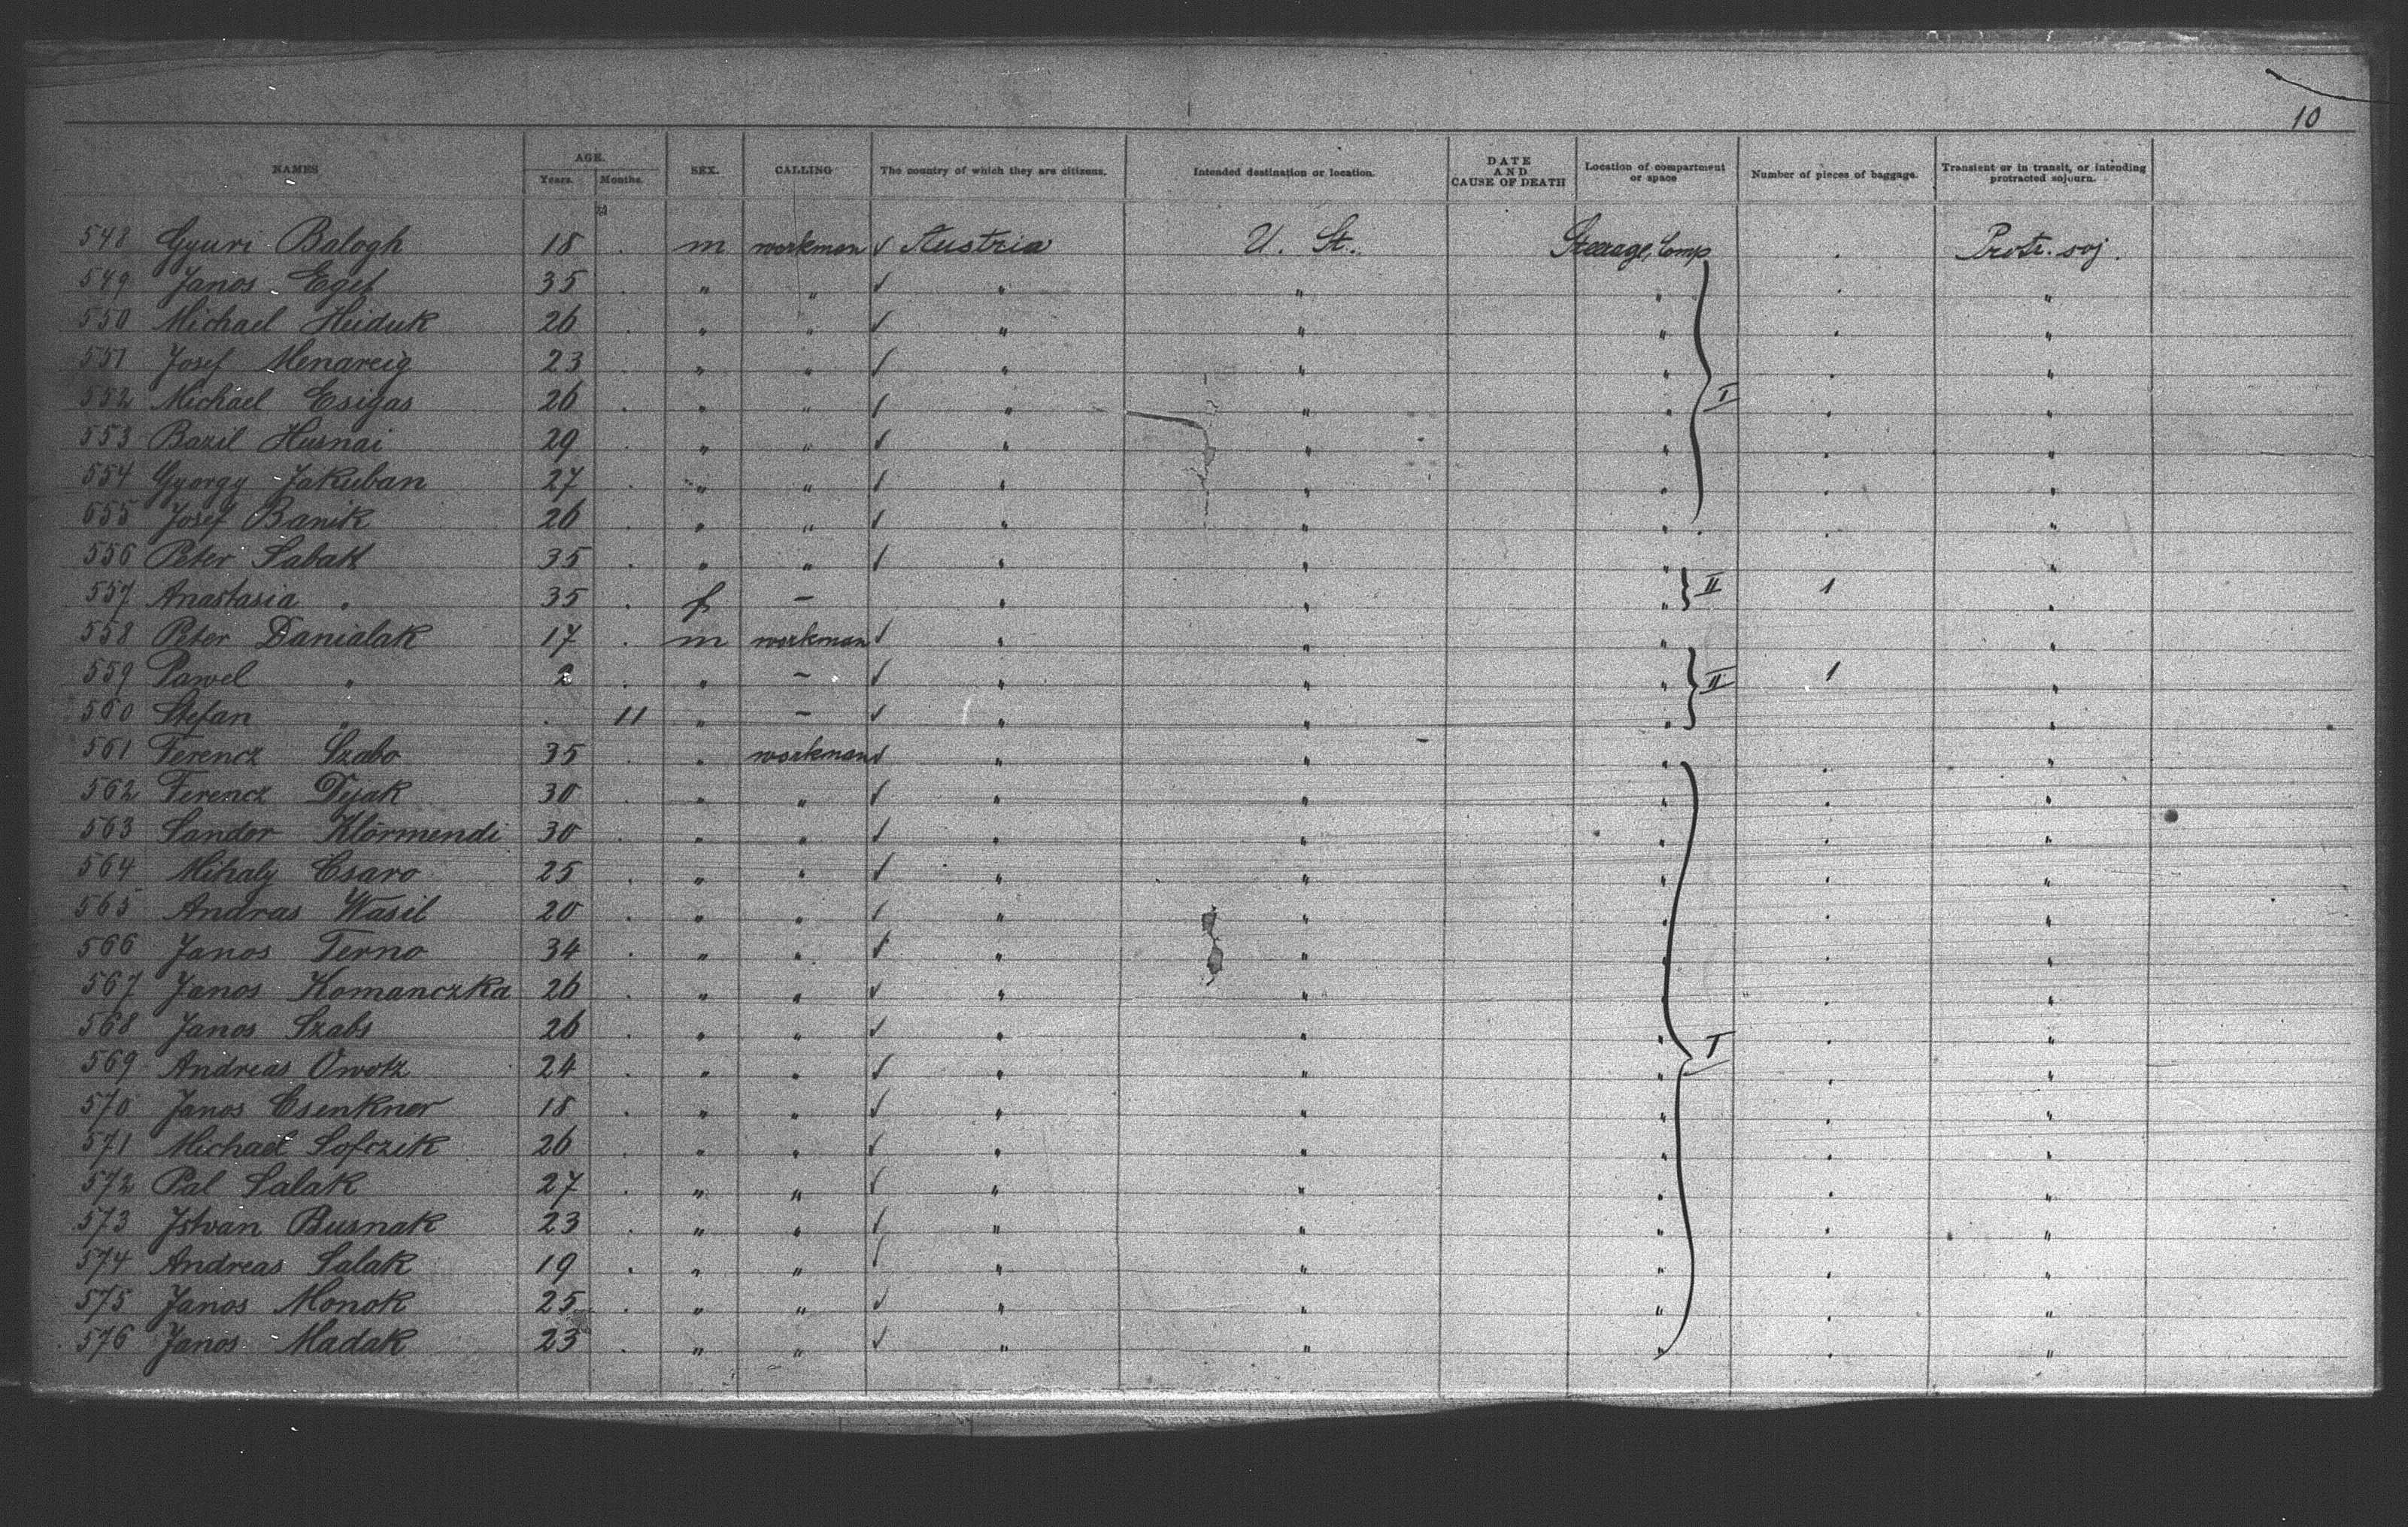 10
NAMES AGE. Years. Months. SEX. CALLING The country of which they are citizens. Intended destination or location. DATE AND CAUSE OF DEATH Location of compartment or space Number of pieces of baggage. Transient or in transit, or intending protracted sojourn.
548 Gyuri Balogh 18 . m workman ✓ Austria U. St. Steerage, Comp . Protr. soj.
549 Janos Eget 35 . " " ✓ " " " . "
550 Michael Heiduk 26 . " " ✓ " " " . "
551 Josef Menareig 23 " " ✓ " " " . "
552 Michael Esigas 26 . " " ✓ " " " I . "
553 Bazil Husnai 29 " " ✓ " " " . "
554 Gyorgy Jakuban 27 . " " ✓ " " " . "
555 Josef Banik 26 . " " ✓ " " " . "
556 Peter Sabak 35 . " " ✓ " "
557 Anastasia " 35 . f – " " " II 1 "
558 Peter Danialak 17 . m workman ✓ " " " "
559 Pawel " 2 . " – ✓ " " " II 1 "
560 Stefan " . 11 " – ✓ " " " "
561 Ferencz Szabo 35 . " workman ✓ " " " . "
562 Ferencz Dijak 30 . " " ✓ " " " . "
563 Sandor Klörmendi 30 . " " ✓ " " " . "
564 Mihaly Csaro 25 . " " ✓ " " " . "
565 Andras Wasil 20 . " " ✓ " " " . "
566 Janos Terno 34 . " " ✓ " " " . "
567 Janos Komanczka 26 . " " ✓ " " " . "
568 Janos Szabs 26 . " " ✓ " " " . "
569 Andreas Owotz 24 . " " ✓ " " " I . "
570 Janos Csenkner 18 . " " ✓ " " " . "
571 Michael Sofczik 26 . " " ✓ " " " . "
572 Pal Salak 27 . " " ✓ " " " . "
573 Istvan Busnak 23 . " " ✓ " " " . "
574 Andreas Salak 19 . " " ✓ " " " . "
575 Janos Monok 25 . " " ✓ " " " . "
576 Janos Madak 23 . " " ✓ " " " . "